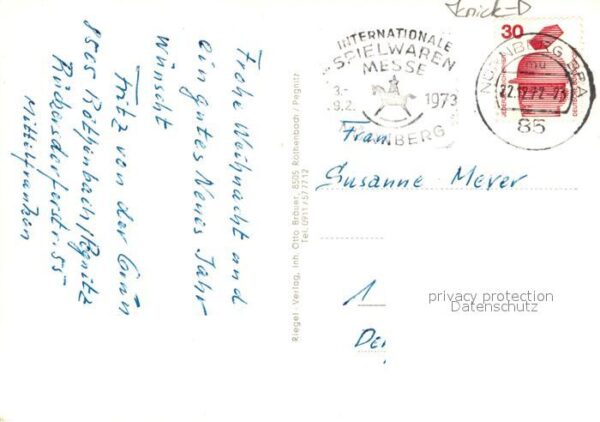 Frohe Weihnacht und
ein gutes Neues Jahr
wünscht
Fritz von der Grün
8505 Röthenbach/Pegnitz
Rückersdorferstr. 55
Mittelfranken
Riegel-Verlag, Inh. Otto Bräuer, 8505 Röthenbach / Pegnitz
Tel. 0911/577712
Knick-D
INTERNATIONALE
SPIELWAREN
MESSE
3.-
9.2. 1973
NÜRNBERG
30
NÜRNBERG BPA
mu
22.12.72-23
85
Frau
Susanne Meyer
1
privacy protection
Datenschutz